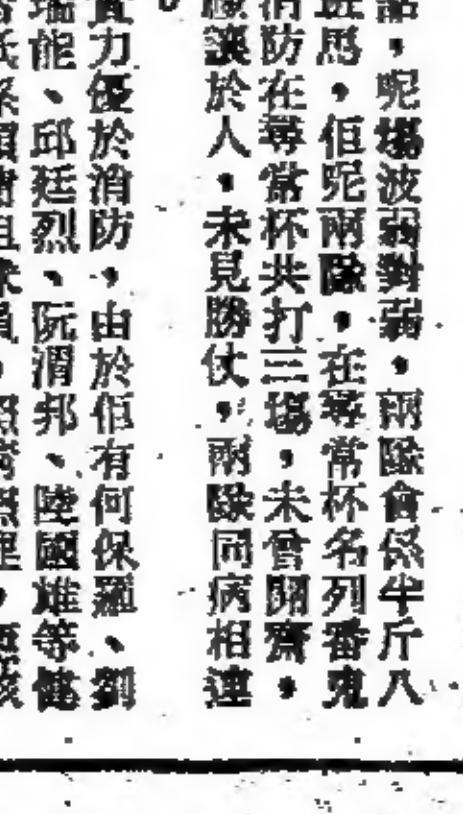 話，呢塲波弱對弱，兩隊會係半斤八
班馬，佢呢兩隊，在尋常杯名列番鬼
消防在尋常杯共打三塲，未曾開齋，
讓於人，未見勝仗，兩隊同病相連
實力優於消防，由於佢有何保羅、劉
瑞能、邱廷烈、阮渭邦、陸國雄等健